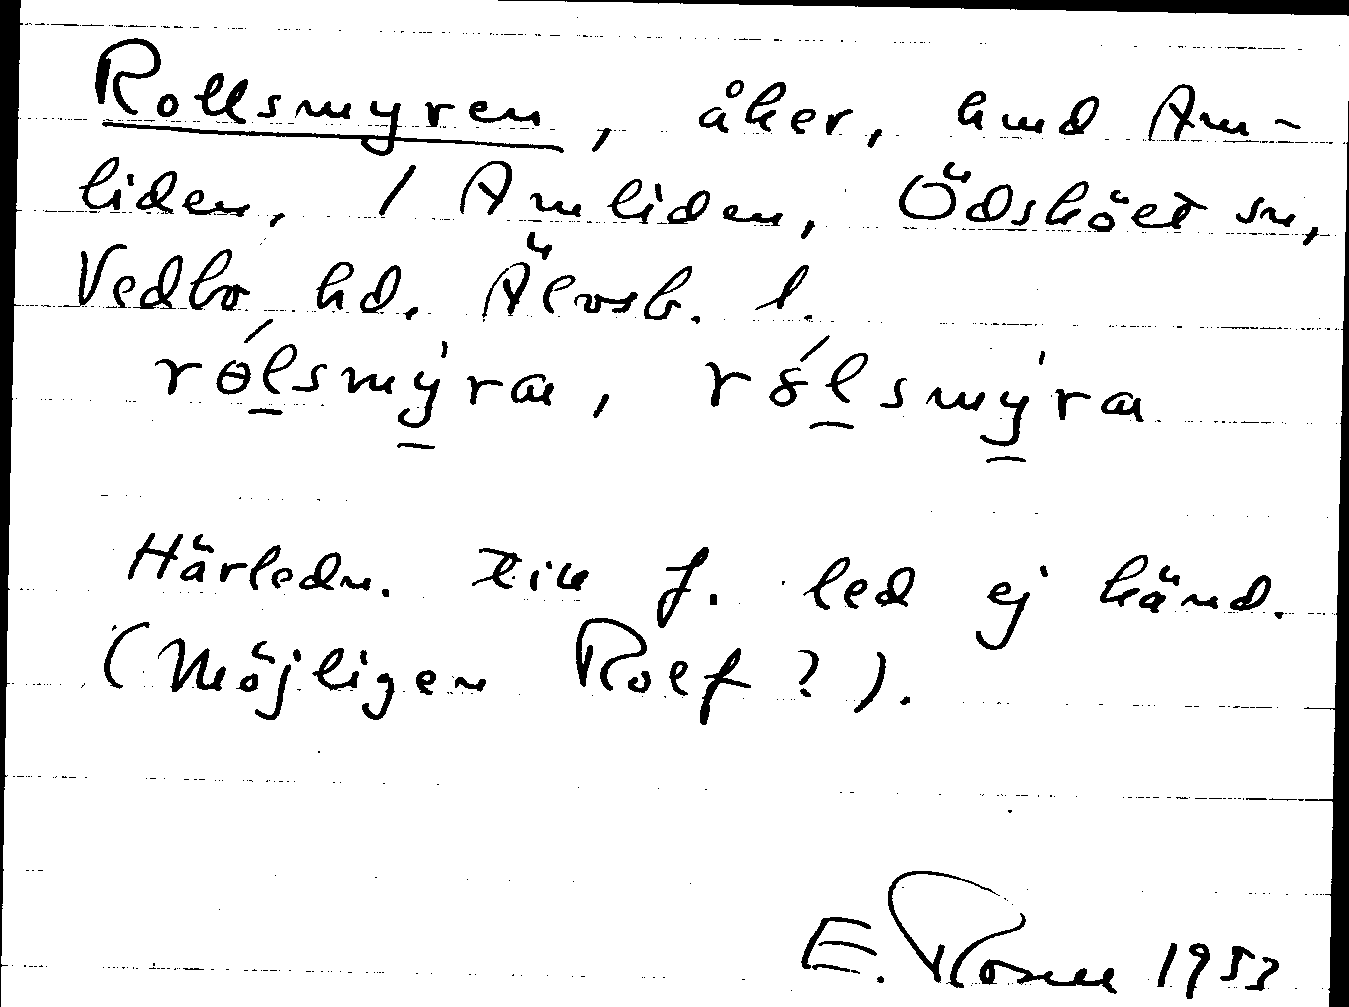 Rollsmyren, åker, hmd Åm-
liden, 1 Åmliden, Ödsköłt sn,
Vedbo hd. Älvsb. l.
rólsmy̍ra,
Härledn. till f. led ej känd.
(Möjligen Rolf?).
E. Rosell 1953